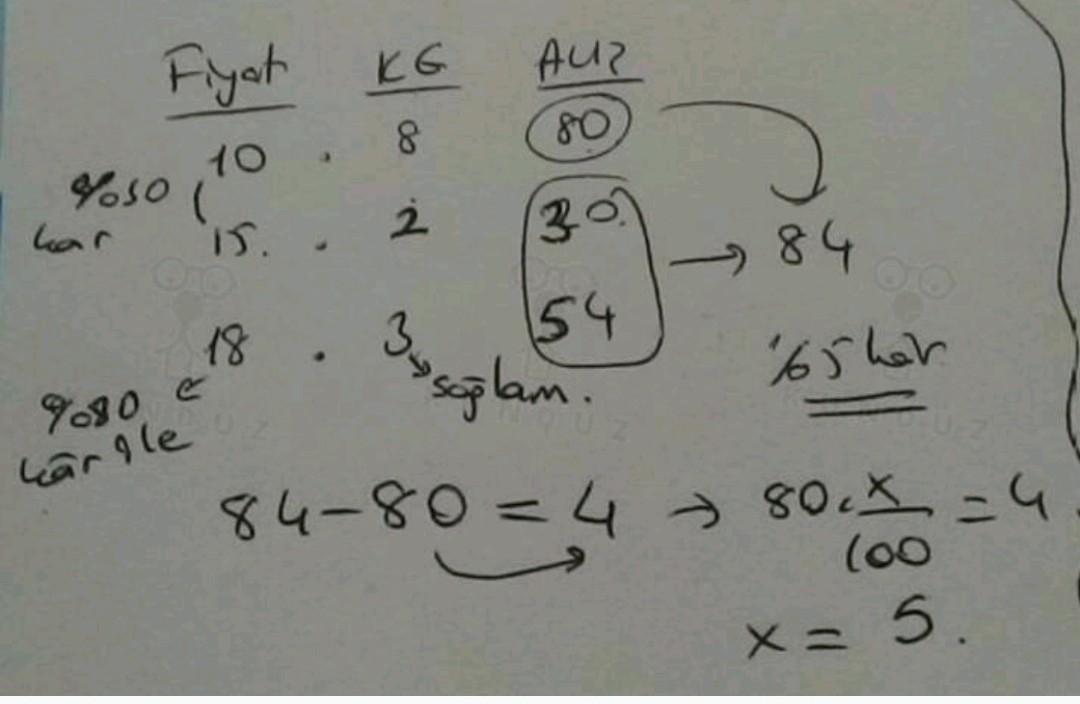 Fiyat KG ALIŞ
10 . 8 80
%50 kar
15. . 2 30 → 84
18 . 3 54
sağlam.
%5 kâr
%80 kâr ile
84-80=4 → 80.x/100=4
x = 5.